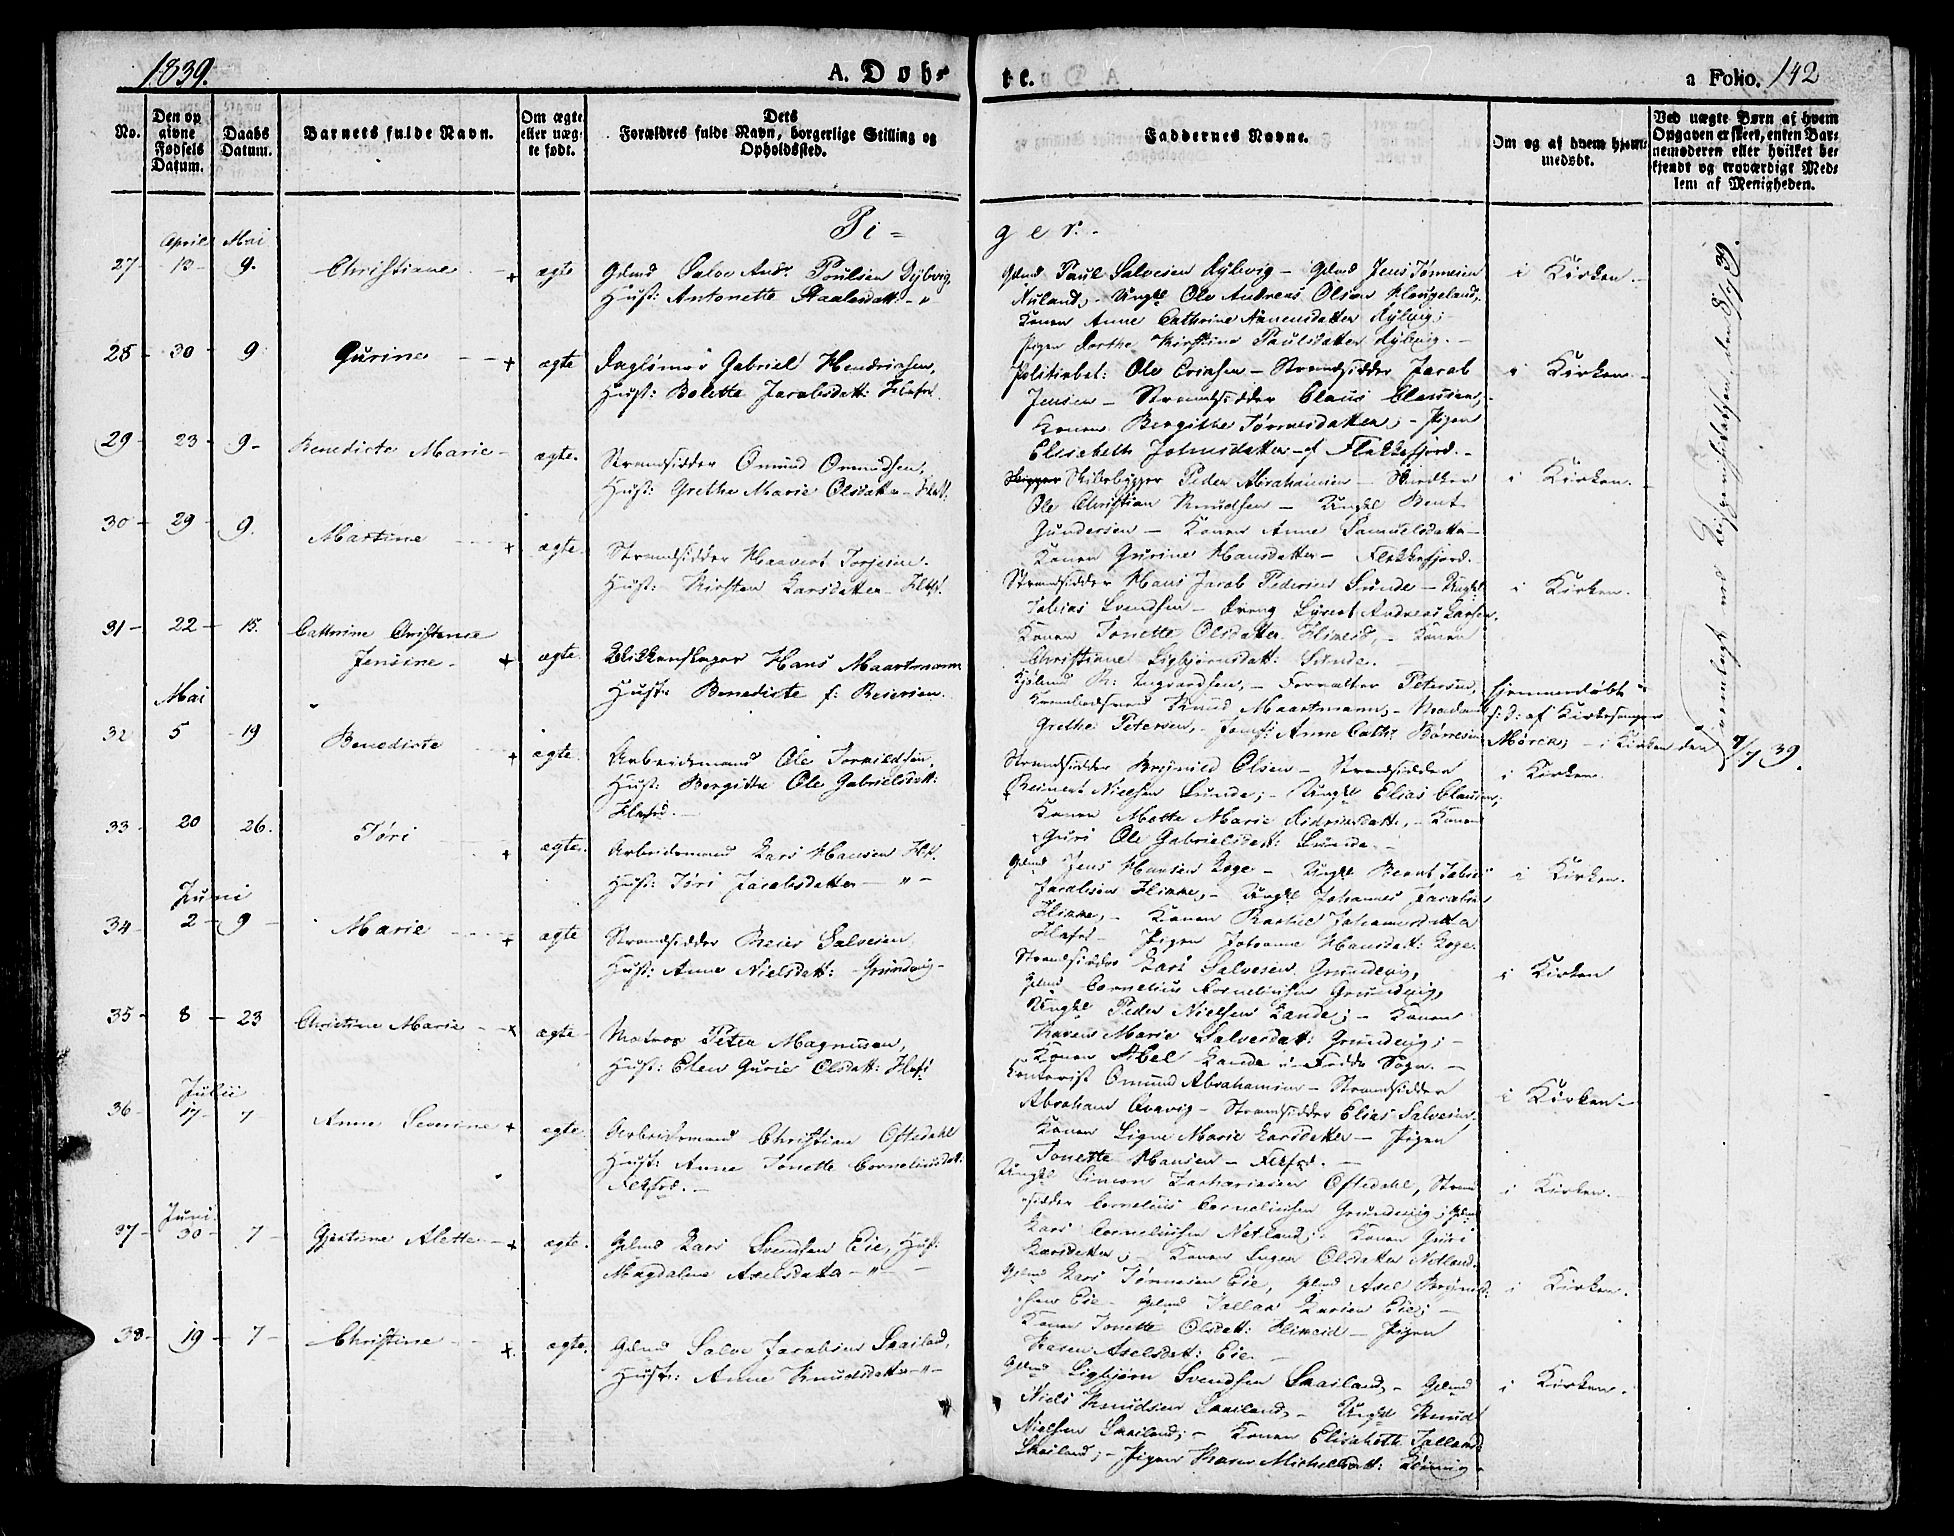 1839.
A. Døb-
te.
a Folio. 142
No.
Den op
givne
Fødsels
Datum.
Daabs
Datum.
Barnets fulde Navn.
Om ægte
eller uæg-
te født.
Dets
Forældres fulde Navn, borgerlige Stilling og
Opholdssted.
Faddernes Navne.
Om og af hvem hjem-
medøbt.
Ved uægte Børn af hvem
Opgaven er skeet, enten Bar-
nemoderen eller hvilket be-
kjendt og troværdigt Med-
lem af Menigheden.
Pi-
ger.
April Mai
27 - 13 - 9. Christiane + ægte
Gdmd Salve Andr. Poulsen Dybvig,
Hust: Antonette Staalesdatt - " -
Gdmd Paul Salvesen Dybvig - Gdmd Jens Tønnesen
Nuland, - Ungkl Ole Andreas Olsen Haugeland,
Konen Anne Cathrine Danensdatter Dybvig;
Pigen Dorthe Kirstine Paulsdatter Dybvig. -
i Kirken. -
28 - 30 - 9 Gurine - + ægte
Dagløner Gabriel Hendriksen,
Hust: Bolette Jacobsdatt: Flafrd.
Politiebet: Ole Eriksen - Strandsidder Jacob
Jensen - Strandsidder Claus Clausen,
Konen Bergithe Tønnesdatter; - Pigen
Elisebeth Johnsdatter af Flekkefjord. -
i Kirken. -
29 - 23 - 9 - Benedicte Marie - ægte.
Strandsidder Omund Omundsen,
Hust: Grethe Marie Olsdatter - Flkf.
Skibsbygger Peder Abrahamsen - Snedker
Ole Christian Knudsen - Ungkl Bent
Gundersen - Konen Anne Samuelsdatter -
Konen Gurine Hansdatter - Flekkefjord.
i Kirken. -
30 - 29 - 9. Martine - + ægte.
Strandsidder Haavert Torjesen.
Hust: Kirsten Larsdatter - Flkf.
Strandsidder Hans Jacob Pedersen Sunde - Ungkl
Tobias Svendsen - Dreng Sivert Andreas Larsen,
Konen Tonette Olsdatter Flikeid, - Konen
Christiane Sigbjørnsdatt: Sunde. -
i Kirken.
31 - 22 - 15. Cathrine Christense
Jensine - + ægte.
Blikkenslager Hans Maartmann
Hust: Benedicte f: Reiersen.
Kjøbmd R: Ingvardsen, - Forvalter Petersen,
Knud Maartmann, - Madame
Grethe Petersen, - Jomf: Anne Cath: Børresen
hjemmedøbt -
s: d: af Kirkesanger
Mørck, - i Kirken den 7/7 39.
Mai
32 5 19 Benedicte + ægte.
Arbeidsmand Ole Torkildsen,
Hust: Bergitte Ole Gabrielsdatt:
Flafrd. -
Strandsidder Brynild Olsen - Strandsidder
Reinert Nielsen Sunde; - Ungkl Elias Clausen;
Konen Mette Marie Didriksdatt:, - Konen
Guri Ole Gabrielsdatt: Sunde. -
i Kirken.
33 - 20 26. Tøri + ægte.
Arbeidsmand Lars Hansen Flkf.
Hust: Tøri Jacobsdatter - " -
Gdmd Jens Hansen Loge - Ungkl Bernt Tobias
Jacobsen Flikke, - Ungkl Johannes Jacobsen
Flikke, - Konen Rachel Johannesdatter
Flafrd - Pigen Johanne Hansdatt: Loge.
i Kirken.
Juni
34 - 2 - 9 - Marie + ægte
Strandsidder Reier Salvesen,
Hust: Anne Nielsdatt: Grundvig -
Strandsidder Lars Salvesen Grundvig,
Gdmd Cornelius Corneliusen Grundvig,
Ungkl Peder Nielsen Lande; - Konen
Karen Marie Salvesdatt: Grundvig; -
Konen Abel Lande i Feda Sogn. -
i Kirken
35 - 8 - 23 Christine Marie - + ægte -
Matros Peter Magnusen,
Hust: Elen Gurie Olsdatt: Flafr
Kontorist Omund Abrahamsen - Strandsidder
Abraham Qvavig - Strandsidder Elias Salvesen.
Konen Signe Marie Larsdatter - Pigen
Tonette Hansen - Flkfrd. -
i Kirken. -
Julii
36 - 17 - 7 Anne Severine + ægte
Arbeidsmand Christian Oftedahl
Hust: Anne Tonette Corneliusdatt:
Flkfrd. -
Ungkl Simon Zachariasen Oftedahl, Strand
sidder Cornelius Corneliusen Grundvig; Gdmd
Lars Corneliusen Netland; - Konen Guri
Larsdatter, - Konen Inger Olsdatter Netland.
i Kirken. -
Juni.
37 - 30 - 7 - Gjertine Alette - + ægte.
Gdmd Lars Svendsen Eie, Hust:
Magdalene Axelsdatter - " -
Gdmd Lars Tønnesen Eie, Gdmd Axel Brynild-
sen Eie - Gdmd Tallak Larsen Eie; -
Konen Tonette Olsdatt: Flikeid - Pigen
Karen Axelsdatt: Eie. -
i Kirken.
38 - 19 - 7 - Christine - + ægte.
Gdmd Salve Jacobsen Skailand,
Hust: Anne Knudsdatter - " -
Gdmd Sigbjørn Svendsen Skailand, - Gdmd
Niels Knudsen Skailand, - Ungkl Knud
Nielsen Skailand; - Konen Elisabeth Tallaks
Skailand; - Pigen Karen Michelsdatt: -
i Kirken.